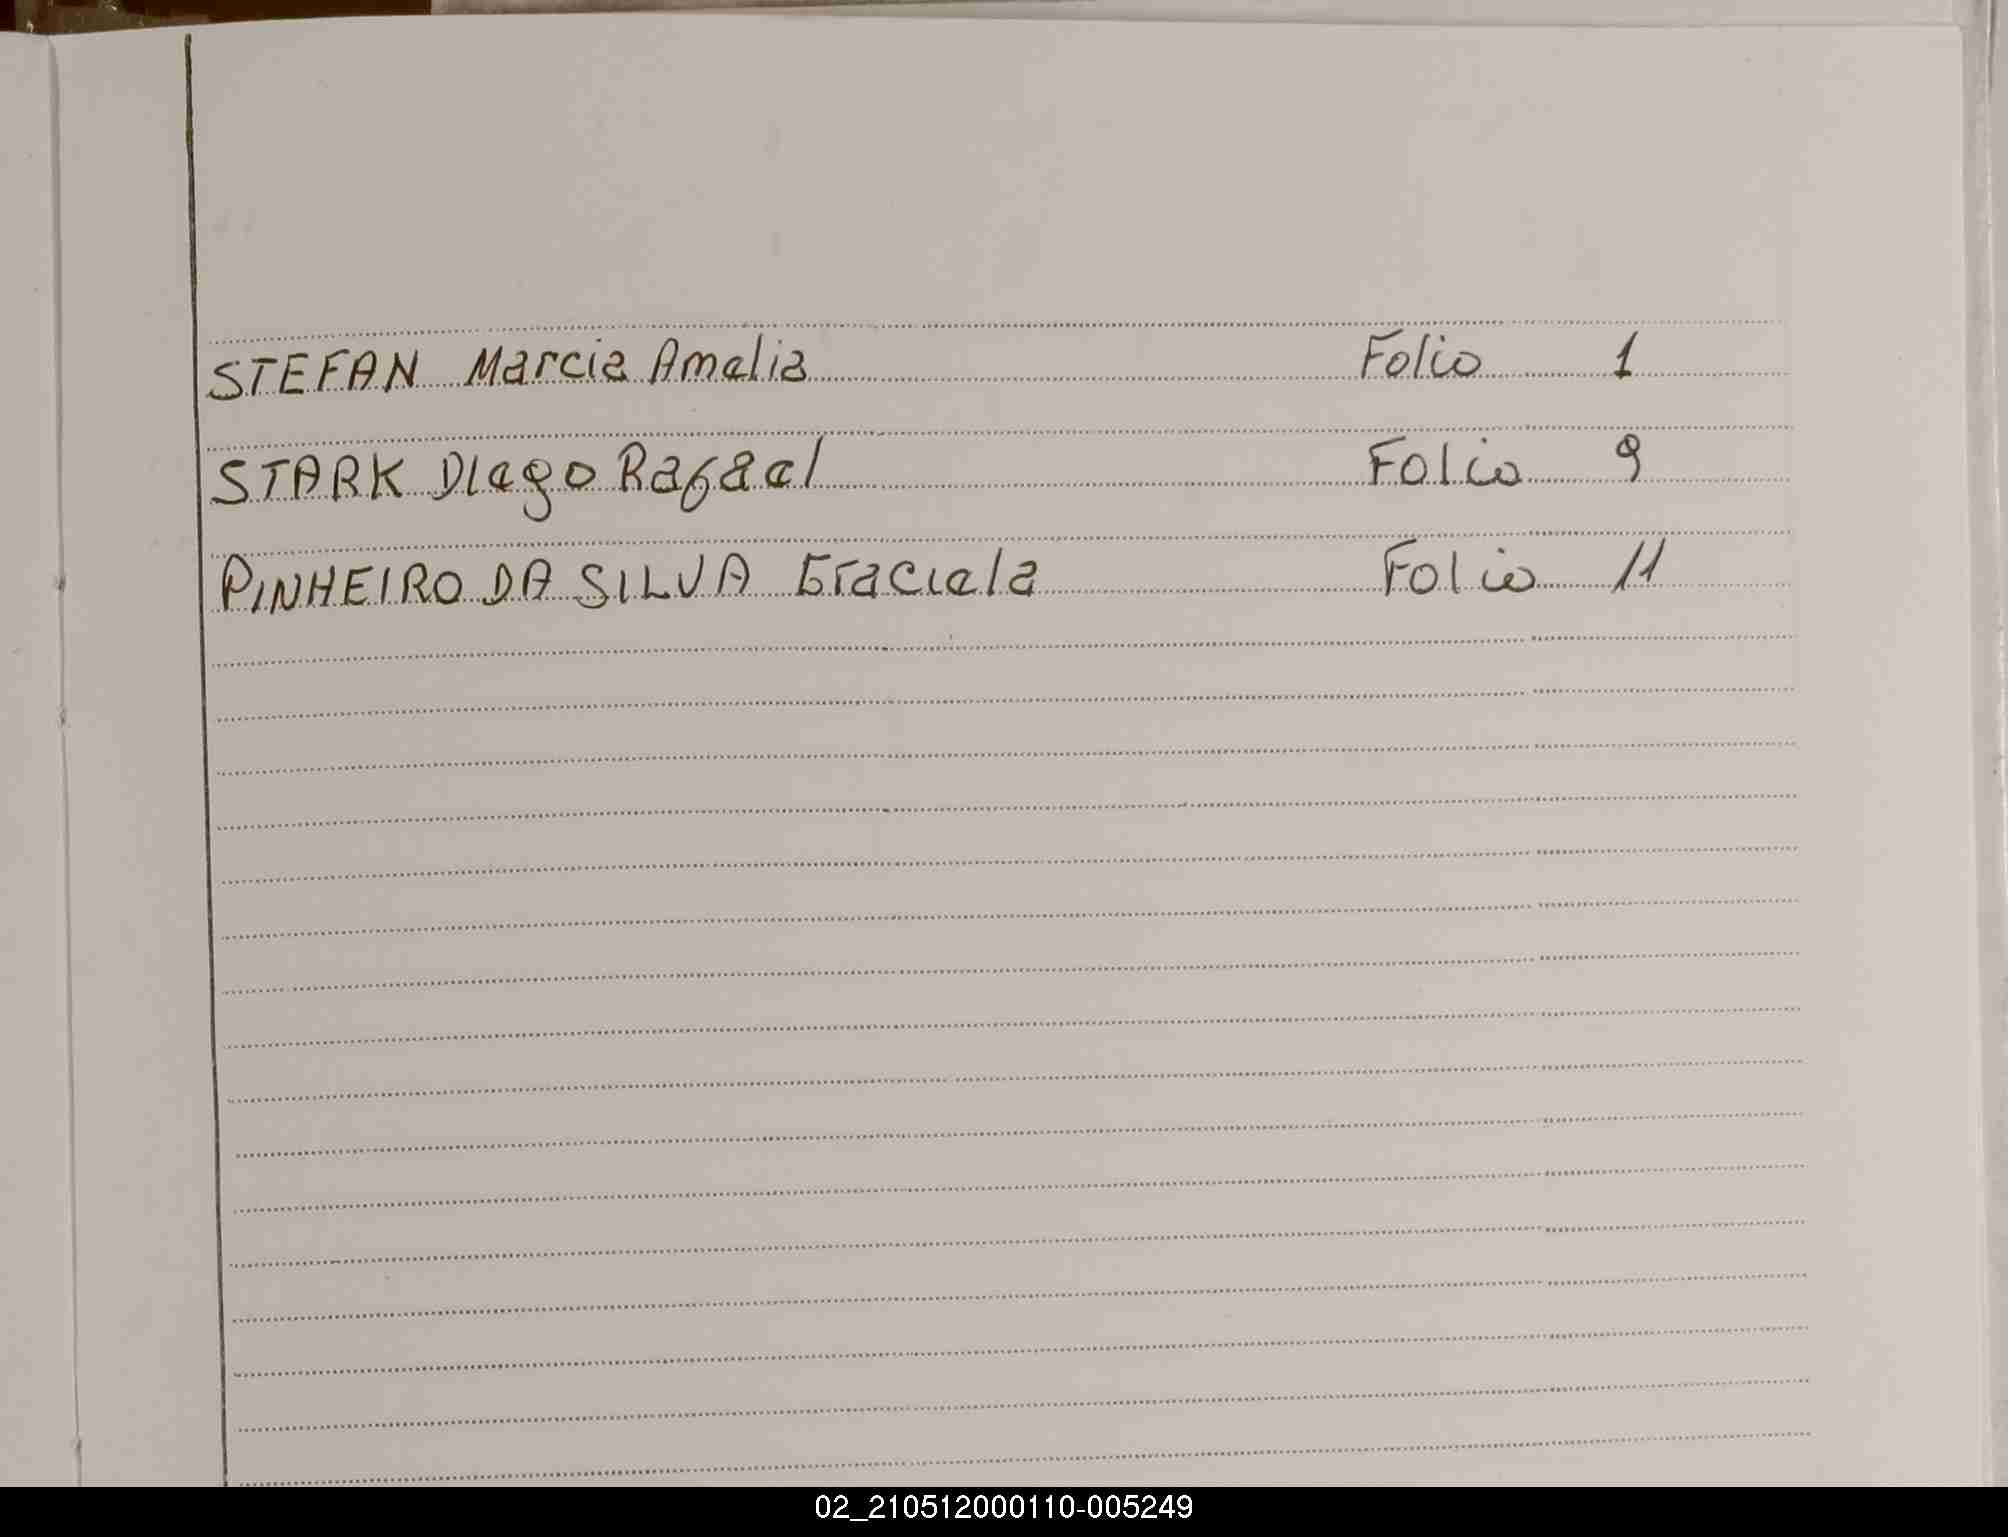 STEFAN Marcia Amelia Folio 1
STARK Diego Rafael Folio 9
PINHEIRO DA SILVA Graciela Folio 11
02_210512000110-005249